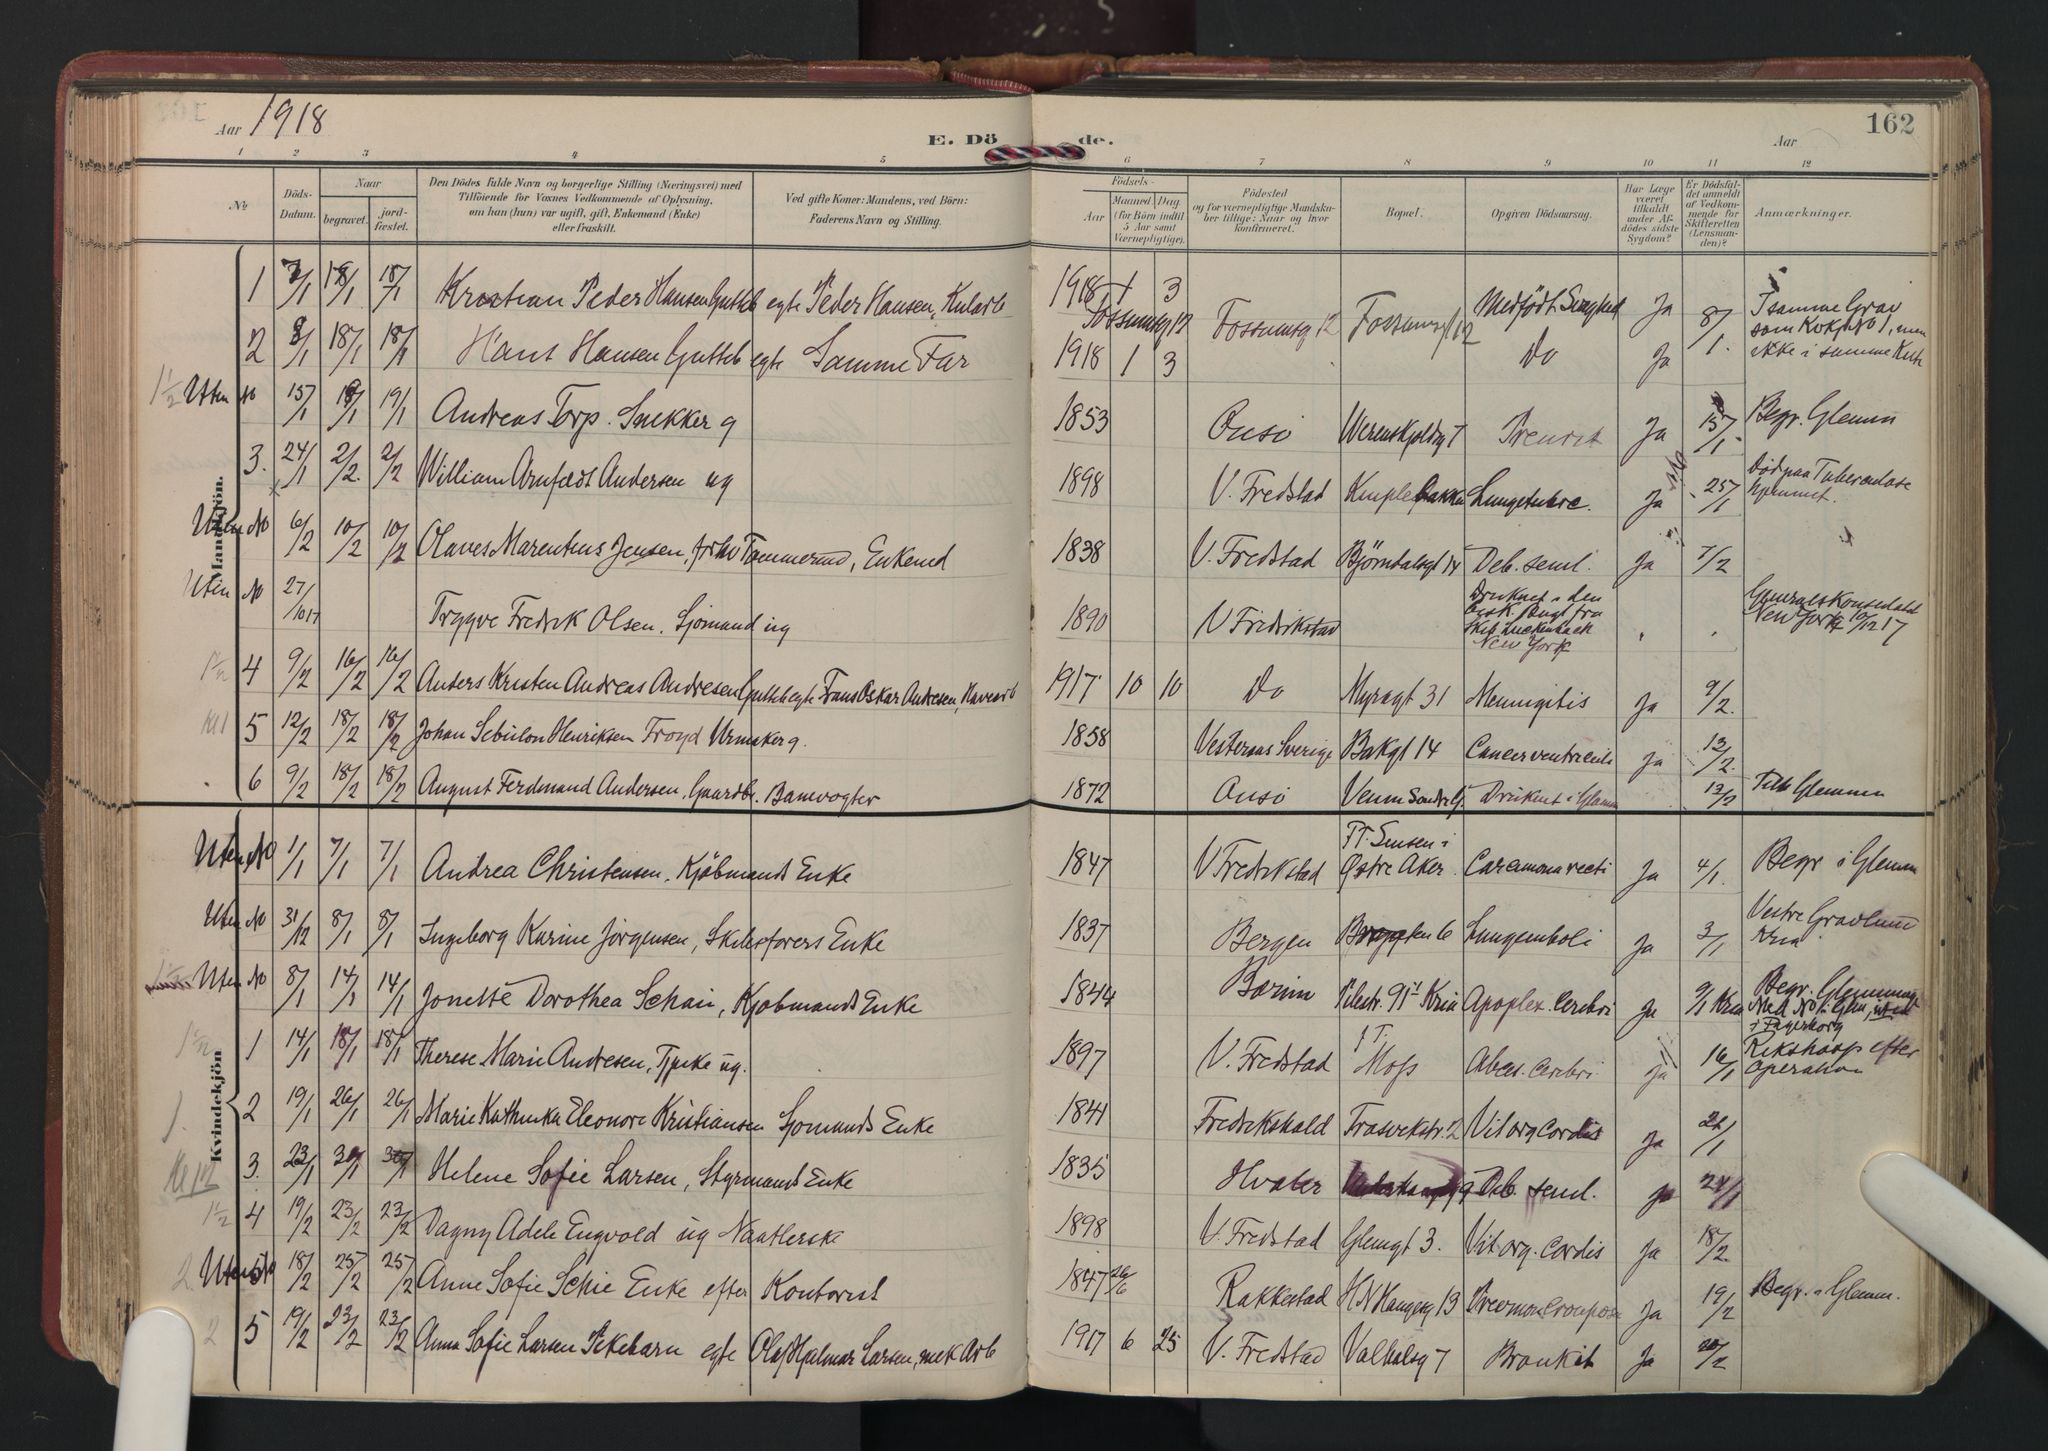 Aar 1918
E. Dö de.
Aar
162
1 2 3 4 5 6 7 8 9 10 11 12
No
Döds-Datum.
Naar
begravet.
jord-fæstet.
Den Dödes fulde Navn og borgerlige Stilling (Næringsvei) med
Tilföiende for Voxnes Vedkommende af Oplysning,
om han (hun) var ugift, gift, Enkemand (Enke)
eller fraskilt.
Ved gifte Koner: Mandens, ved Börn:
Faderens Navn og Stilling.
Födsels-
Aar
Maaned. Dag.
(for Börn indtil
5 Aar samt
Værnepligtige).
Födested
og for værnepligtige Mandsku-
ber tillige: Naar og hvor
konfirmeret.
Bopæl.
Opgiven Dödsaarsag.
Har Læge
været
tilkaldt
under Af-
dödes sidste
Sygdom?
Er Dödsfal-
det anmeldt
af Vedkom-
mende for
Skifteretten
(Lensman-
den)?
Anmærkninger.
Mandkjön.
1 18/1 18/1 Kristian Peder Hansen Gutteb egte Peder Hansen, Kularb 1918 1 3 Fossumsg 12 Fossumsg 12 Medfödt Svaghed Ja 8/1 I samme Grav
som Kvkj No 1, men
ikke i samme Kiste
2 18/1 18/1 Hans Hansen Gutteb egte Samme Far 1918 1 3 Do Ja
Uten No 15/1 19/1 19/1 Andreas Torp. Snekker g 1853 Onsö Werenskjoldg 7 Ja 15/1 Begr. Glemm
3. 24/1 2/2 2/2 William Arnfeldt Andersen ug 1898 V. Fredstad Lungetuberc. Ja 25/1 Död paa Tuberculose
hjemmet.
Uten No 6/2 10/2 10/2 Olaves Marentius Jensen, Enkemd 1838 V. Fredstad Björndalsgt 14 Deb. senil. Ja 7/2
Uten No 27/10 17 Trygve Fredrik Olsen. Sjömand ug 1890 V Fredrikstad Druknet i den
Bisk. Bugt fra
New York
Generalskonsulatet
New York 10/12 17
4 9/2 16/2 16/2 Anders Kristen Andreas Andresen Gutteb egte Frans Oskar Andresen, Havearb 1917 10 10 Do Myragt 31 Meningitis Ja 9/2.
5 12/2 18/2 18/2 Johan Sebulon Henriksen Froyd Urmaker g. 1858 Vesteraas Sverige Bakgt 14 Cancer ventriculi Ja 13/2.
6 9/2 18/2 18/2 August Ferdinand Andersen, Gaardbr. Banevogter 1872 Onsö Druknet i Glomm 13/2 Glemmen
Kvindekjön
Uten No 1/1 7/1 7/1 Andrea Christensen, Kjöbmands Enke 1847 V Fredrikstad Östre Aker Ja 4/1. Begr i Glemm
Uten No 31/12 8/1 8/1 Ingeborg Karine Jörgensen, Skibsförers Enke 1837 Bergen Bryggten 6 Lungemboli Ja 3/1 Vestre Gravlund
Kria
Uten No 8/1 14/1 14/1 Jonette Dorothea Schau, Kjöbmands Enke 1844 Bærum Pilestr. 91 Kria Apoplex. Cerebri Ja 9/1 Kria Begr. Glemmen
i Fagerborg
1 14/1 18/1 18/1 Therese Marie Andresen, Tjpike ug. 1897 V. Fredstad Moss Absc. Cerebri Ja 16/1 Rikshosp efter
operation
2 19/1 26/1 26/1 Marie Kathinka Eleonore Kristiansen Sjömands Enke 1841 Fredrikshald Traavekstr. 2 Vit org Cordis Ja 21/1
3. 23/1 30/1 30/1 Helene Sofie Larsen, Styrmands Enke 1835 Hvaler Deb. senil. Ja 24/1
4 19/2 23/2 23/2 Dagny Adele Engvold ug 1898 V. Fredstad Glemgt 3. Vit org. Cordis Ja 18/2
Uten No 18/2 25/2 25/2 Anne Sofie Schie Enke efter Kontorist 1847 26/6 Rakkestad Ja 19/2 Begr. i Glemm.
5 19/2 23/2 23/2 Anna Sofie Larsen Pikebarn egte Olaf Hjalmar Larsen, mek Arb 1917 6 25 V. Fredstad Valhalsg 7 Bronkit Ja 20/2